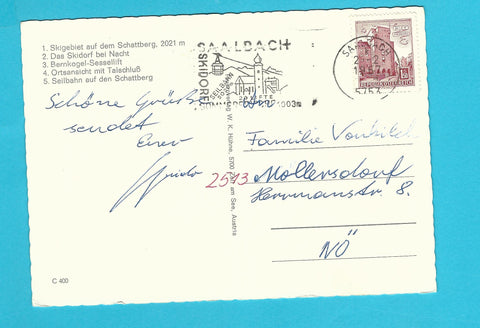 1. Skigebiet auf dem Schattberg, 2021 m
2. Das Skidorf bei Nacht
3. Bernkogel-Sessellift
4. Ortsansicht mit Talschluß
5. Seilbahn auf den Schattberg
SAALBACH
SKIDORF
SEILBAHN
REPUBLIK ÖSTERREICH
5753
Schöne Grüße
sendet
Euer
Guido
W. K. Hühne, 5700 am See, Austria
Familie
2513 Möllersdorf
Herrmanstr. 8.
NÖ
C 400